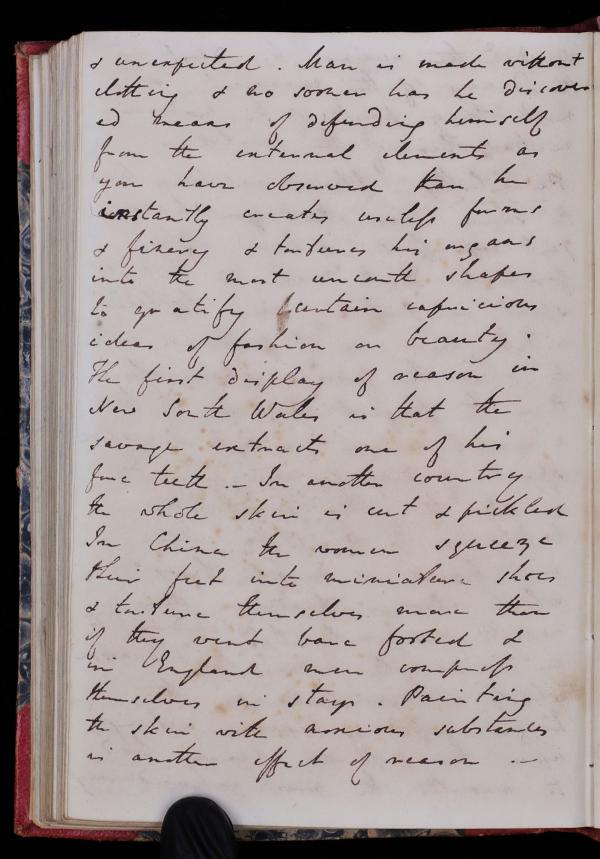 & unexpected. Man is made without
clothing & no sooner has he discover
ed means of defending himself
from the external elements as
you have observed than he
instantly creates useless forms
& finery & tortures his organs
into the most uncouth shapes
to gratify certain capricious
ideas of fashion or beauty.
The first display of reason in
New South Wales is that the
savage extracts one of his
fore teeth. – In another country
the whole skin is cut & pickled
In China the women squeeze
their feet into miniature shoes
& torture themselves more than
if they went bare footed &
in England men compress
themselves in stays. Painting
the skin with noxious substances
is another effect of reason –